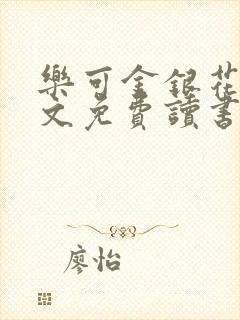 樂可金銀花
文免費讀書
廖怡